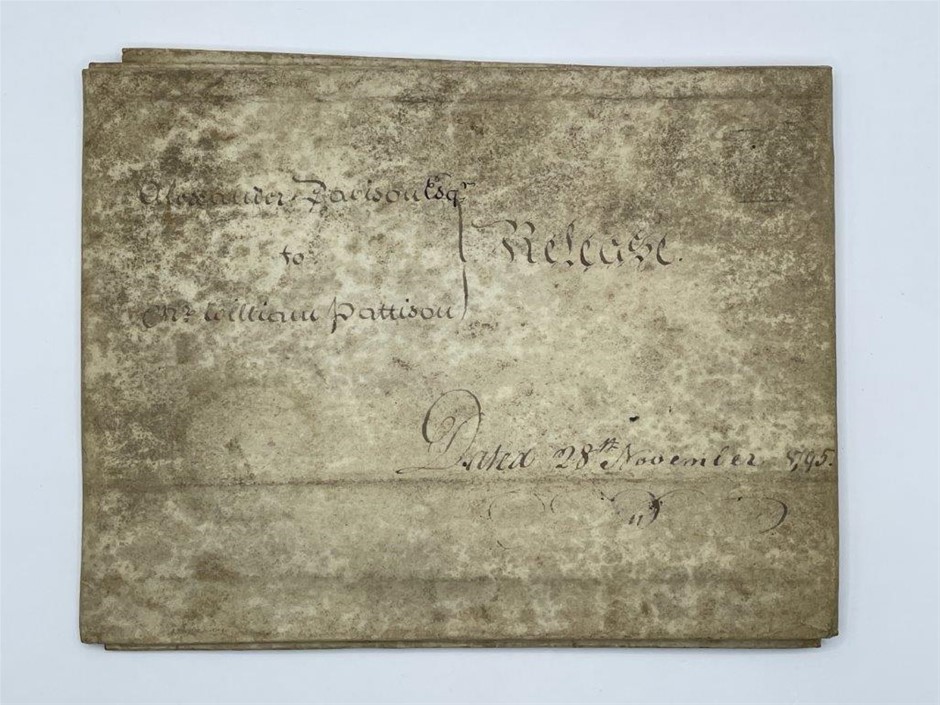 Alexander Davison Esqr
to
Mr William Pattison
Release.
Dated 28th November 1795.